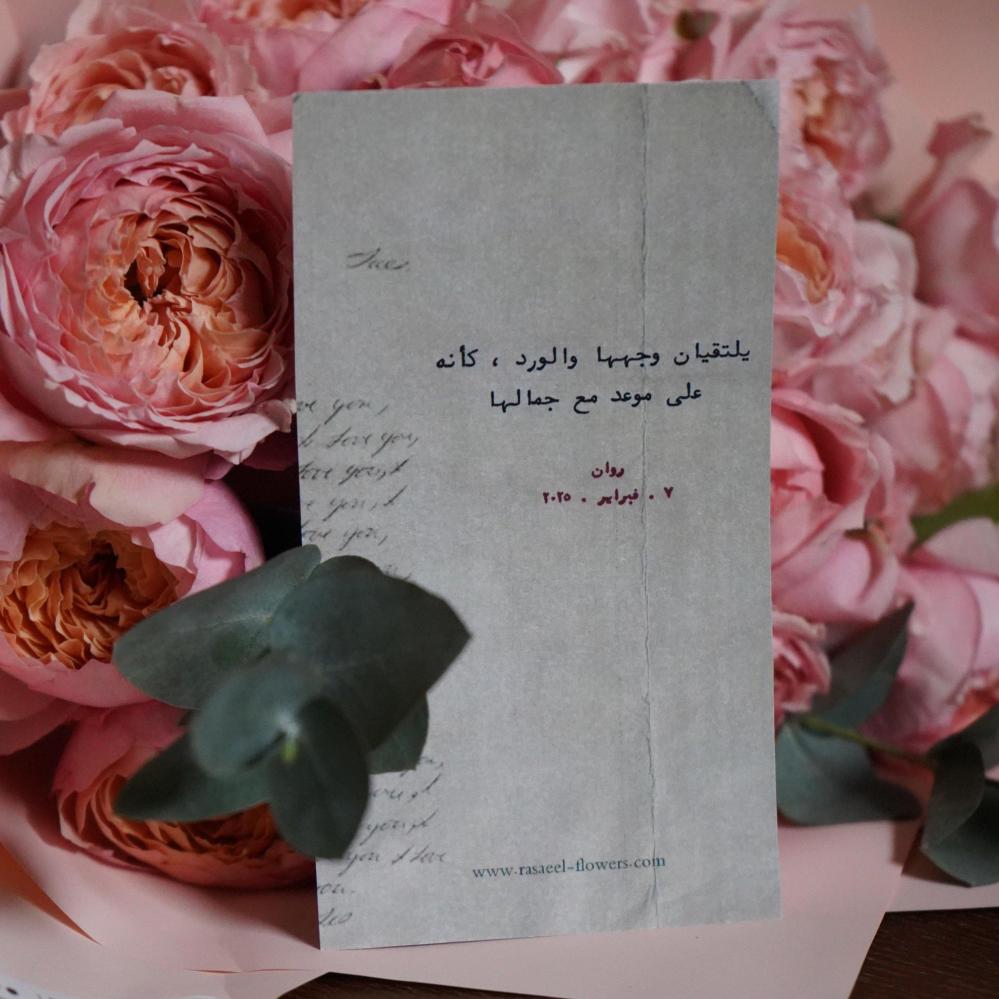 يلتقيان وجهها والورد ، كأنه
على موعد مع جمالها
روان
٧ . فبراير . ٢٠٢٥
ve you,
love you,
love you, I
you, I
love you,
you I love
www.rasaeel-flowers.com